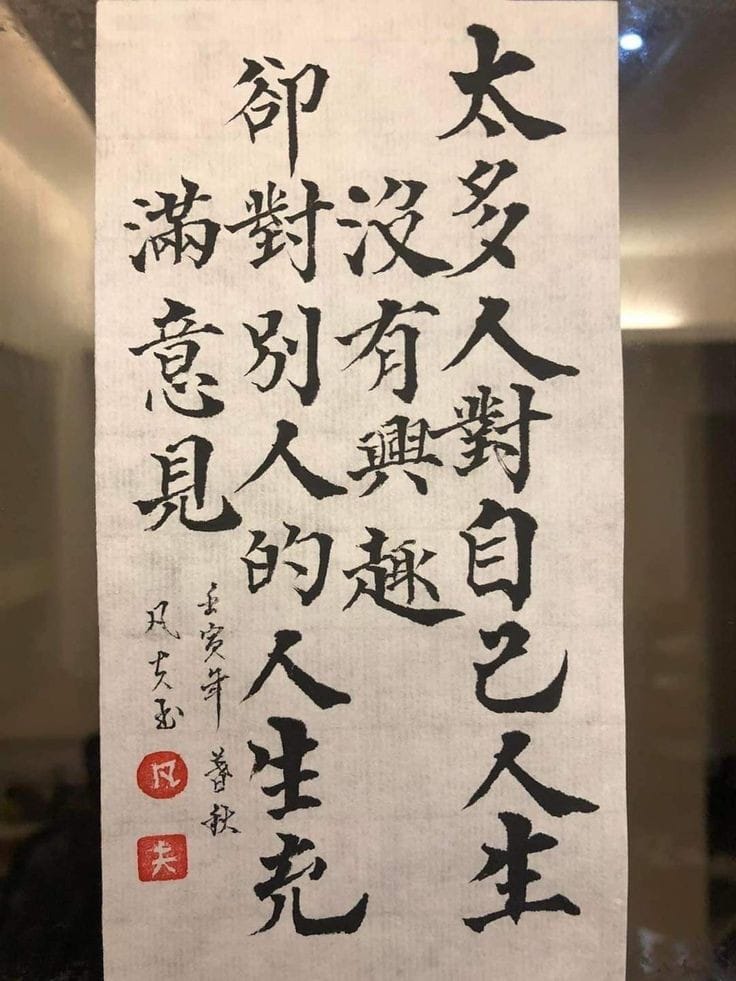 太多人對自己人生
沒有興趣
卻對別人的人生充
滿意見
壬寅年 暮秋
凡夫
凡
夫